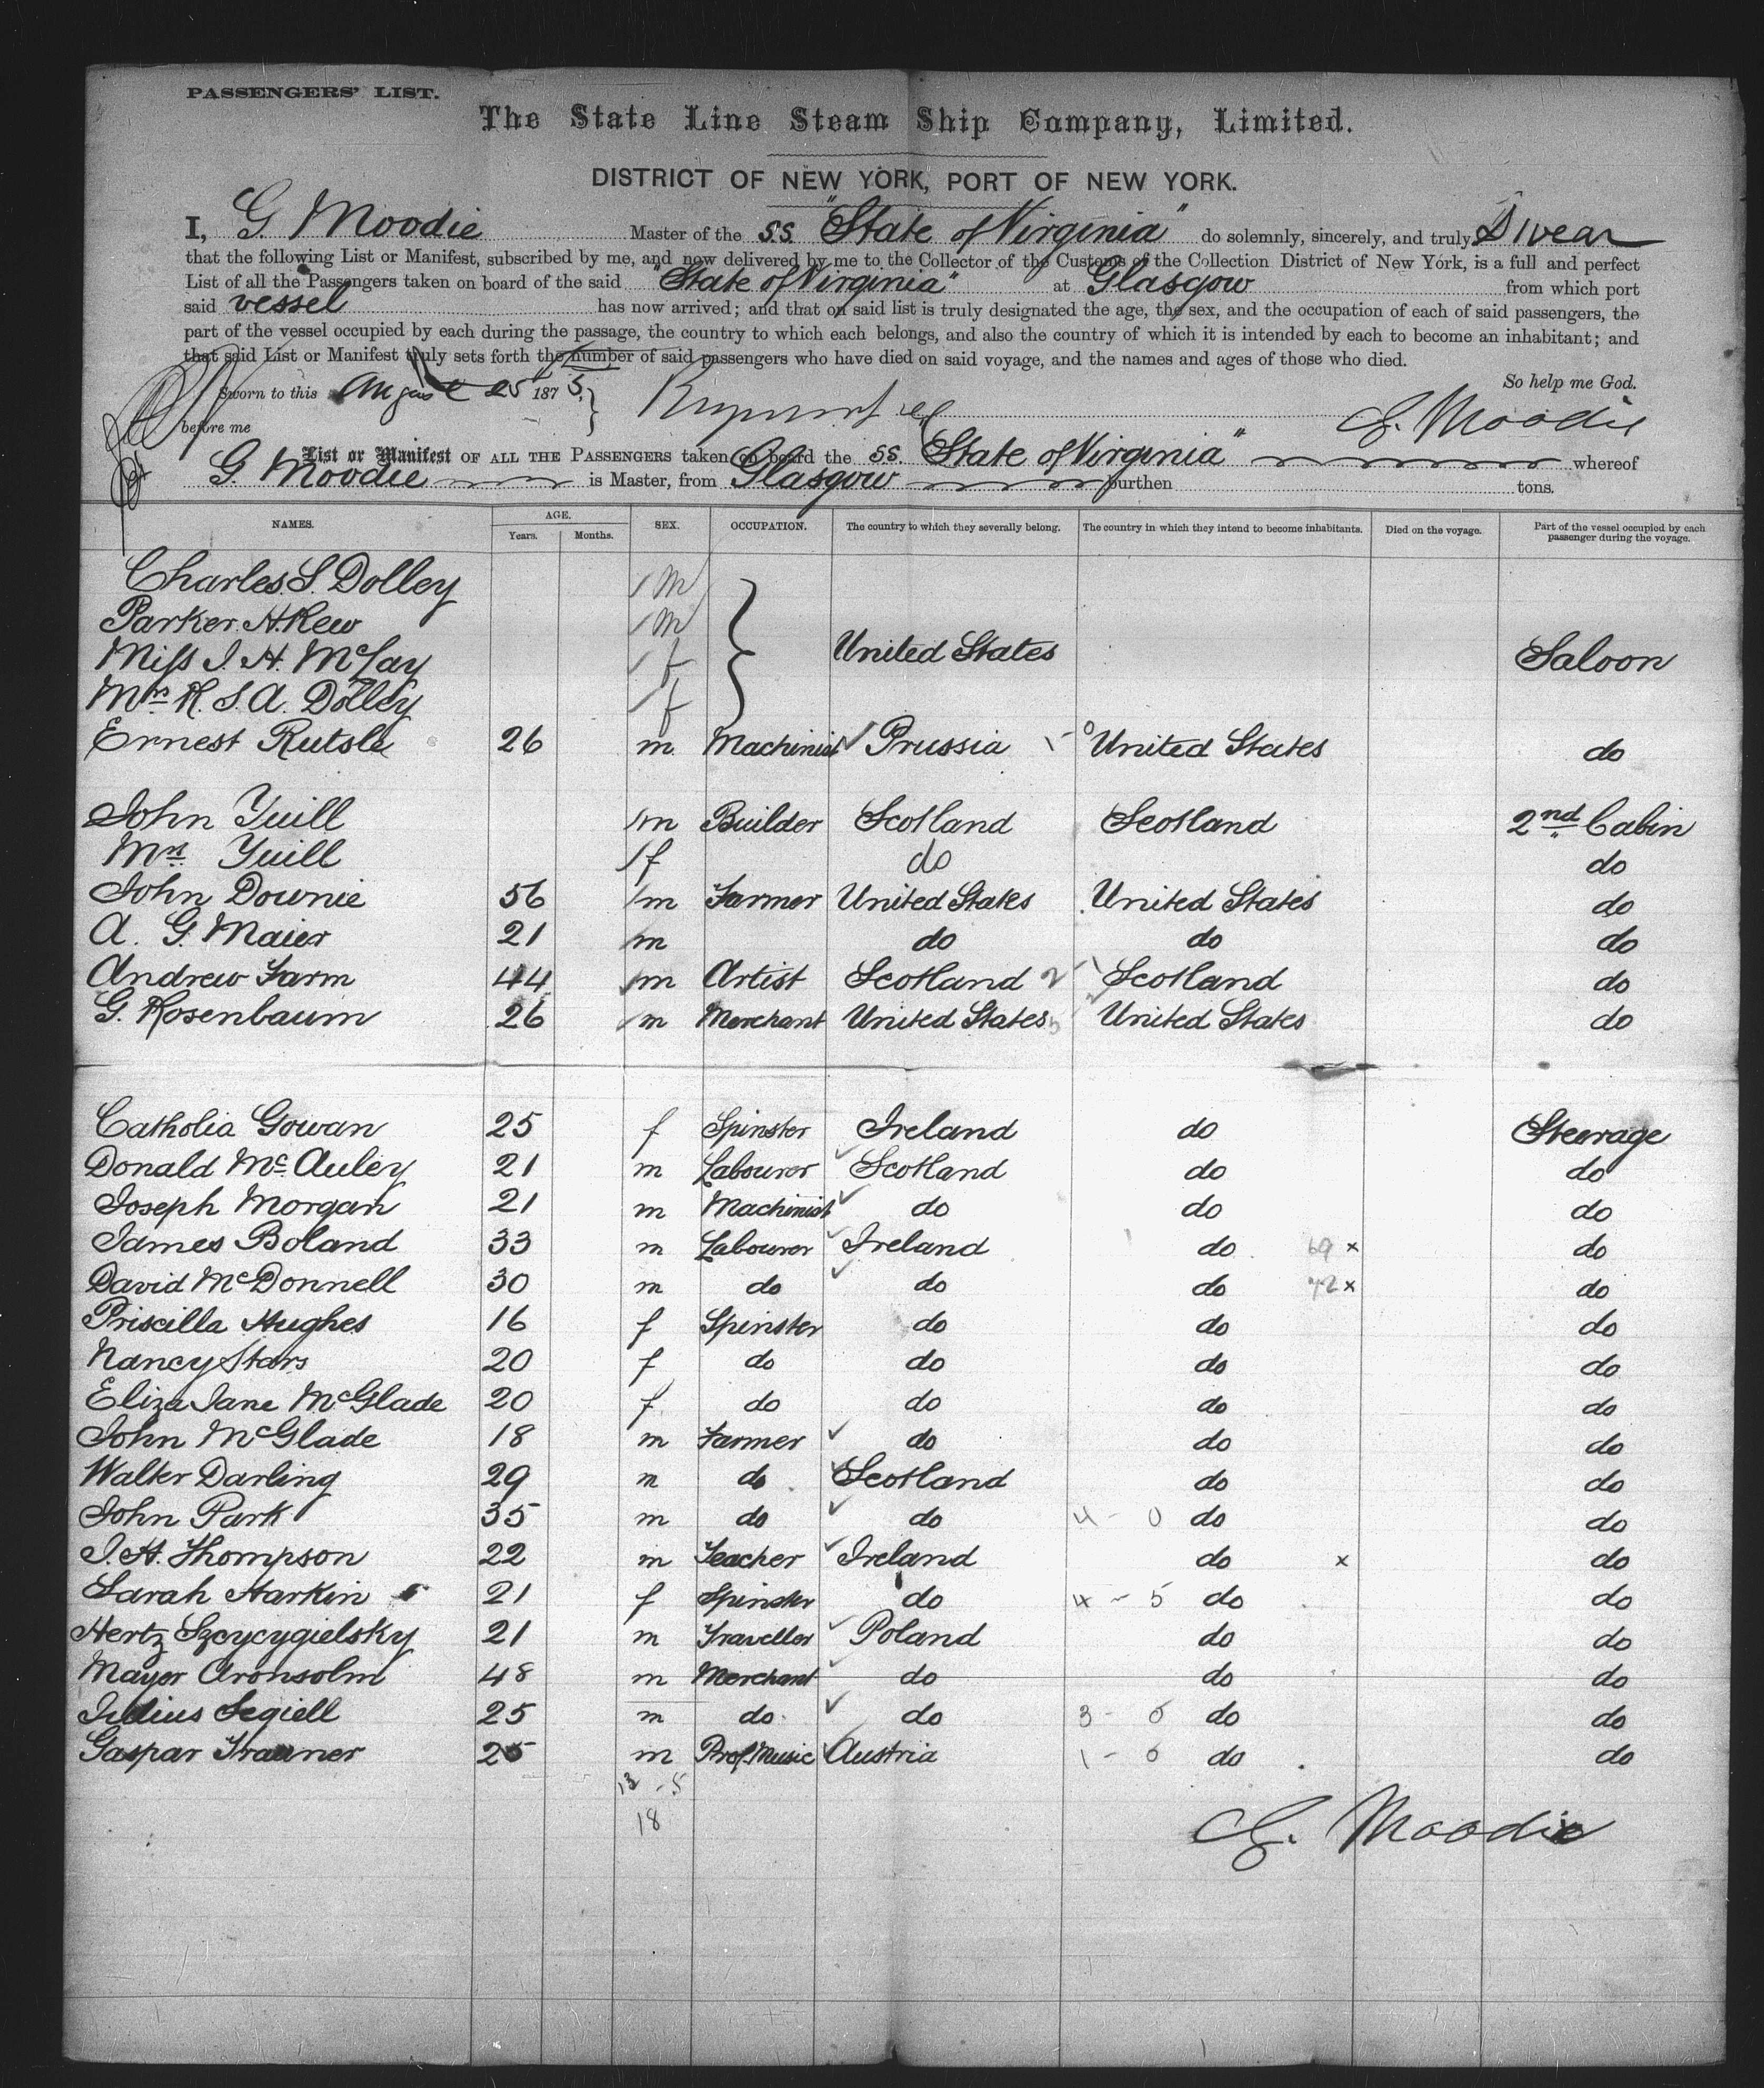 PASSENGERS' LIST.
The State Line Steam Ship Company, Limited.
DISTRICT OF NEW YORK, PORT OF NEW YORK.
I, G. Moodie Master of the S.S. "State of Virginia" do solemnly, sincerely, and truly Swear
that the following List or Manifest, subscribed by me, and now delivered by me to the Collector of the Customs of the Collection District of New York, is a full and perfect
List of all the Passengers taken on board of the said "State of Virginia" at Glasgow from which port
said vessel has now arrived; and that on said list is truly designated the age, the sex, and the occupation of each of said passengers, the
part of the vessel occupied by each during the passage, the country to which each belongs, and also the country of which it is intended by each to become an inhabitant; and
that said List or Manifest truly sets forth the number of said passengers who have died on said voyage, and the names and ages of those who died.
So help me God.
Sworn to this August 25 1875.
before me G. Moodie
List or Manifest OF ALL THE PASSENGERS taken on board the S.S. "State of Virginia" whereof
G. Moodie is Master, from Glasgow burthen tons.
NAMES. AGE. Years. Months. SEX. OCCUPATION. The country to which they severally belong. The country in which they intend to become inhabitants. Died on the voyage. Part of the vessel occupied by each passenger during the voyage.
Charles. S. Dolley m
Parker. H. Rew m
Miss J. H. McLay f United States Saloon
Mrs R. S. A. Dolley f
Ernest Rutsle 26 m. Machinist Prussia United States do
John Yuill m Builder Scotland Scotland 2nd Cabin
Mrs Yuill f do do
John Downie 56 m Farmer United States United States do
A. G. Maier 21 m do do do
Andrew Farm 44 m Artist Scotland 2 Scotland do
G. Rosenbaum 26 m Merchant United States United States do
Catholia Gowan 25 f Spinster Ireland do Steerage
Donald McAuley 21 m Labourer Scotland do do
Joseph Morgan 21 m Machinist do do do
James Boland 33 m Labourer Ireland do 69 x do
David McDonnell 30 m do do do 72 x do
Priscilla Hughes 16 f Spinster do do do
Nancy Stars 20 f do do do do
Eliza Jane McGlade 20 f do do do do
John McGlade 18 m Farmer do do do
Walter Darling 29 m do Scotland do do
John Park 35 m do do 4 - 0 do do
J. H. Thompson 22 m Teacher Ireland do x do
Sarah Harkin 21 f Spinster do 4 - 5 do do
Hertz Szcycygielsky 21 m Traveller Poland do do
Mayer Aronsolm 48 m Merchant do do do
Julius Segiell 25 m do do 3 - 0 do do
Gaspar Trauner 25 m Prof. Music Austria 1 - 0 do do
13 - 5
18
G. Moodie